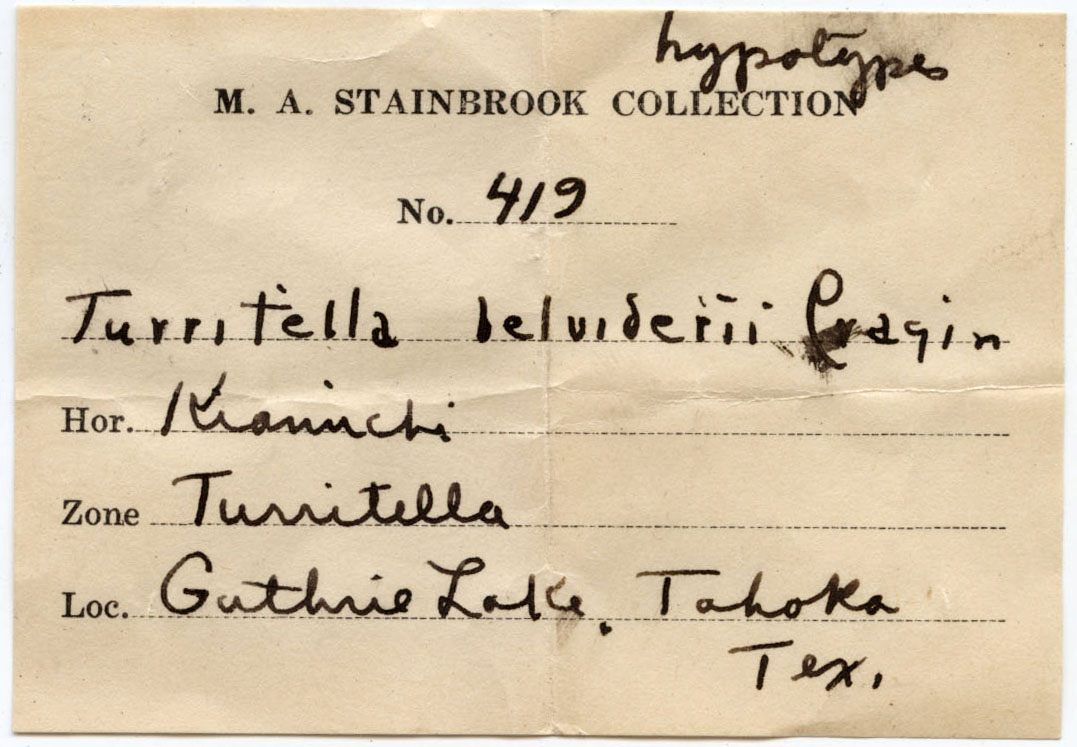 hypotypes
M. A. STAINBROOK COLLECTION
No. 419
Turritella belviderii Cragin
Hor. Kiamichi
Zone Turritella
Loc. Guthrie Lake, Tahoka
Tex.